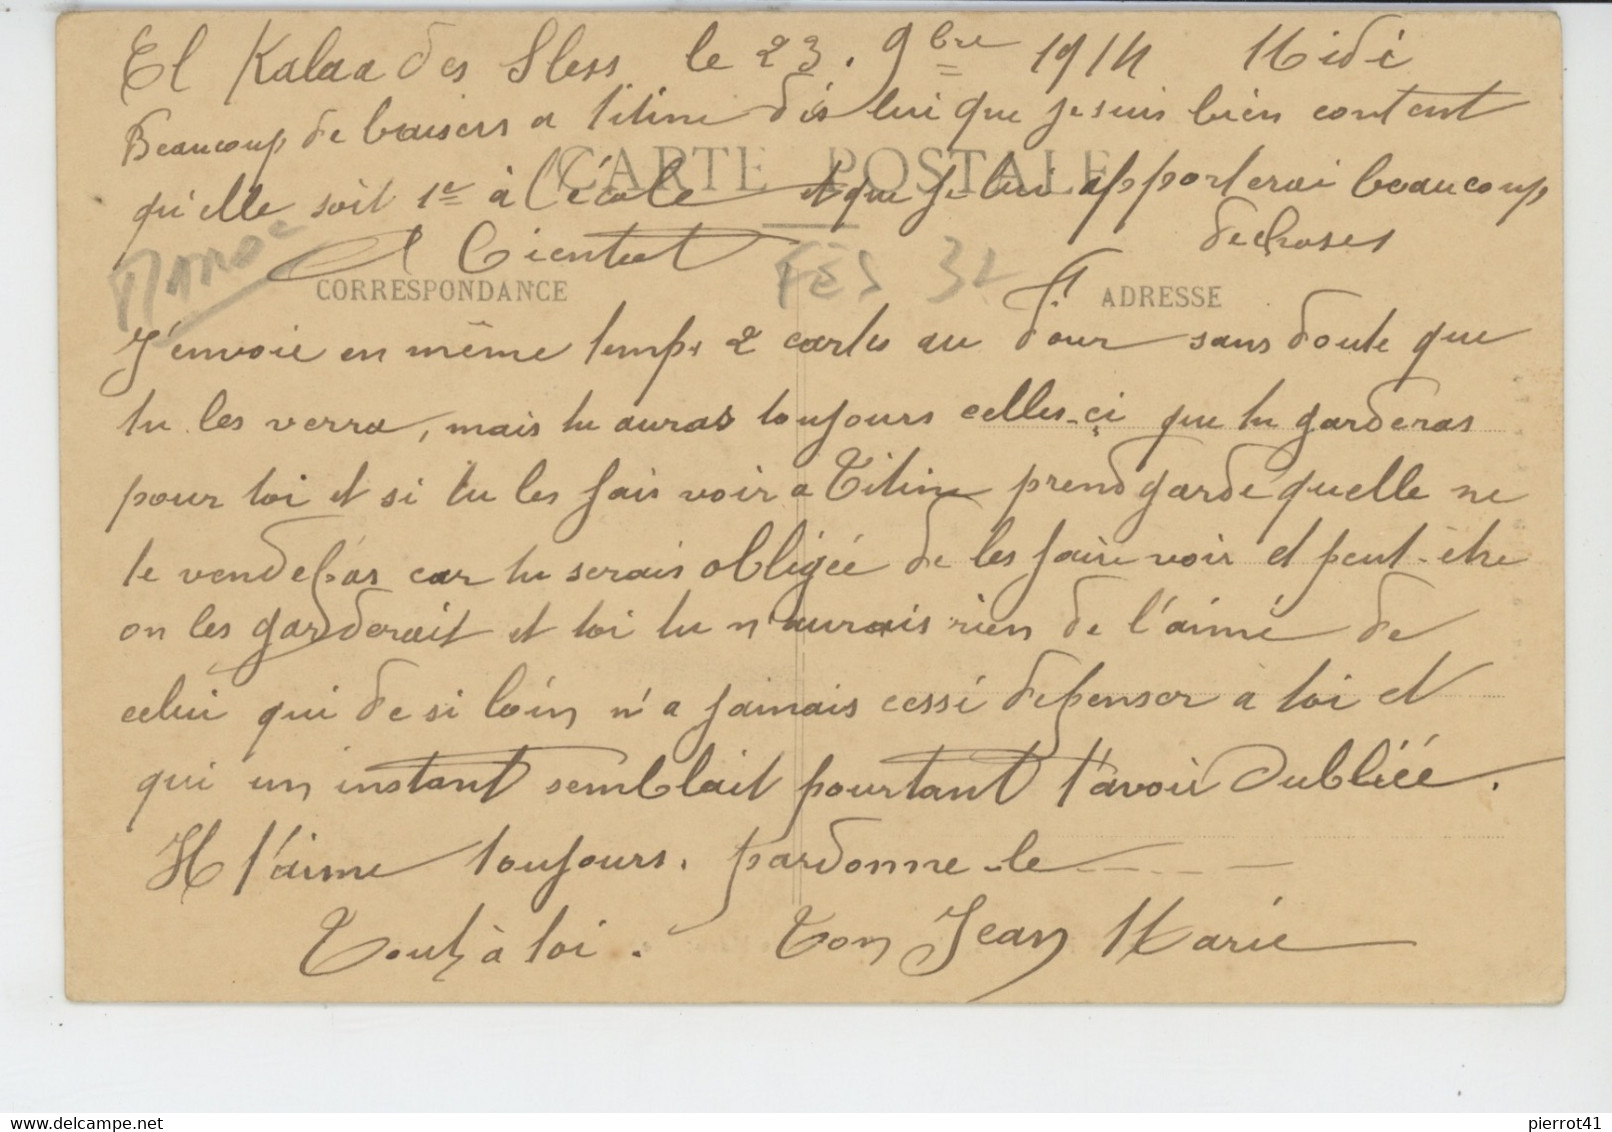 El Kalaa des Sless le 23. 9bre 1914 Midi
Beaucoup de baisers a Titine dis lui que je suis bien content
CARTE POSTALE
qu'elle soit 1e à l'école et que je lui apporterai beaucoup
de choses
Maroc
A Bientot
FES 32
CORRESPONDANCE
ADRESSE
J'envoie en même temps 2 cartes au Four sans doute que
tu les verra, mais tu auras toujours celles-ci que tu garderas
pour toi et si tu les fais voir a Titine prend garde quelle ne
te vende pas car tu serais obligée de les faire voir et peut-être
on les garderait et toi tu n'aurais rien de l'aimé de
celui qui de si loin n'a jamais cessé de penser a toi et
qui un instant semblait pourtant t'avoir oubliée.
Il t'aime toujours. pardonne-le
Tout à toi. Ton Jean Marie
pierrot41